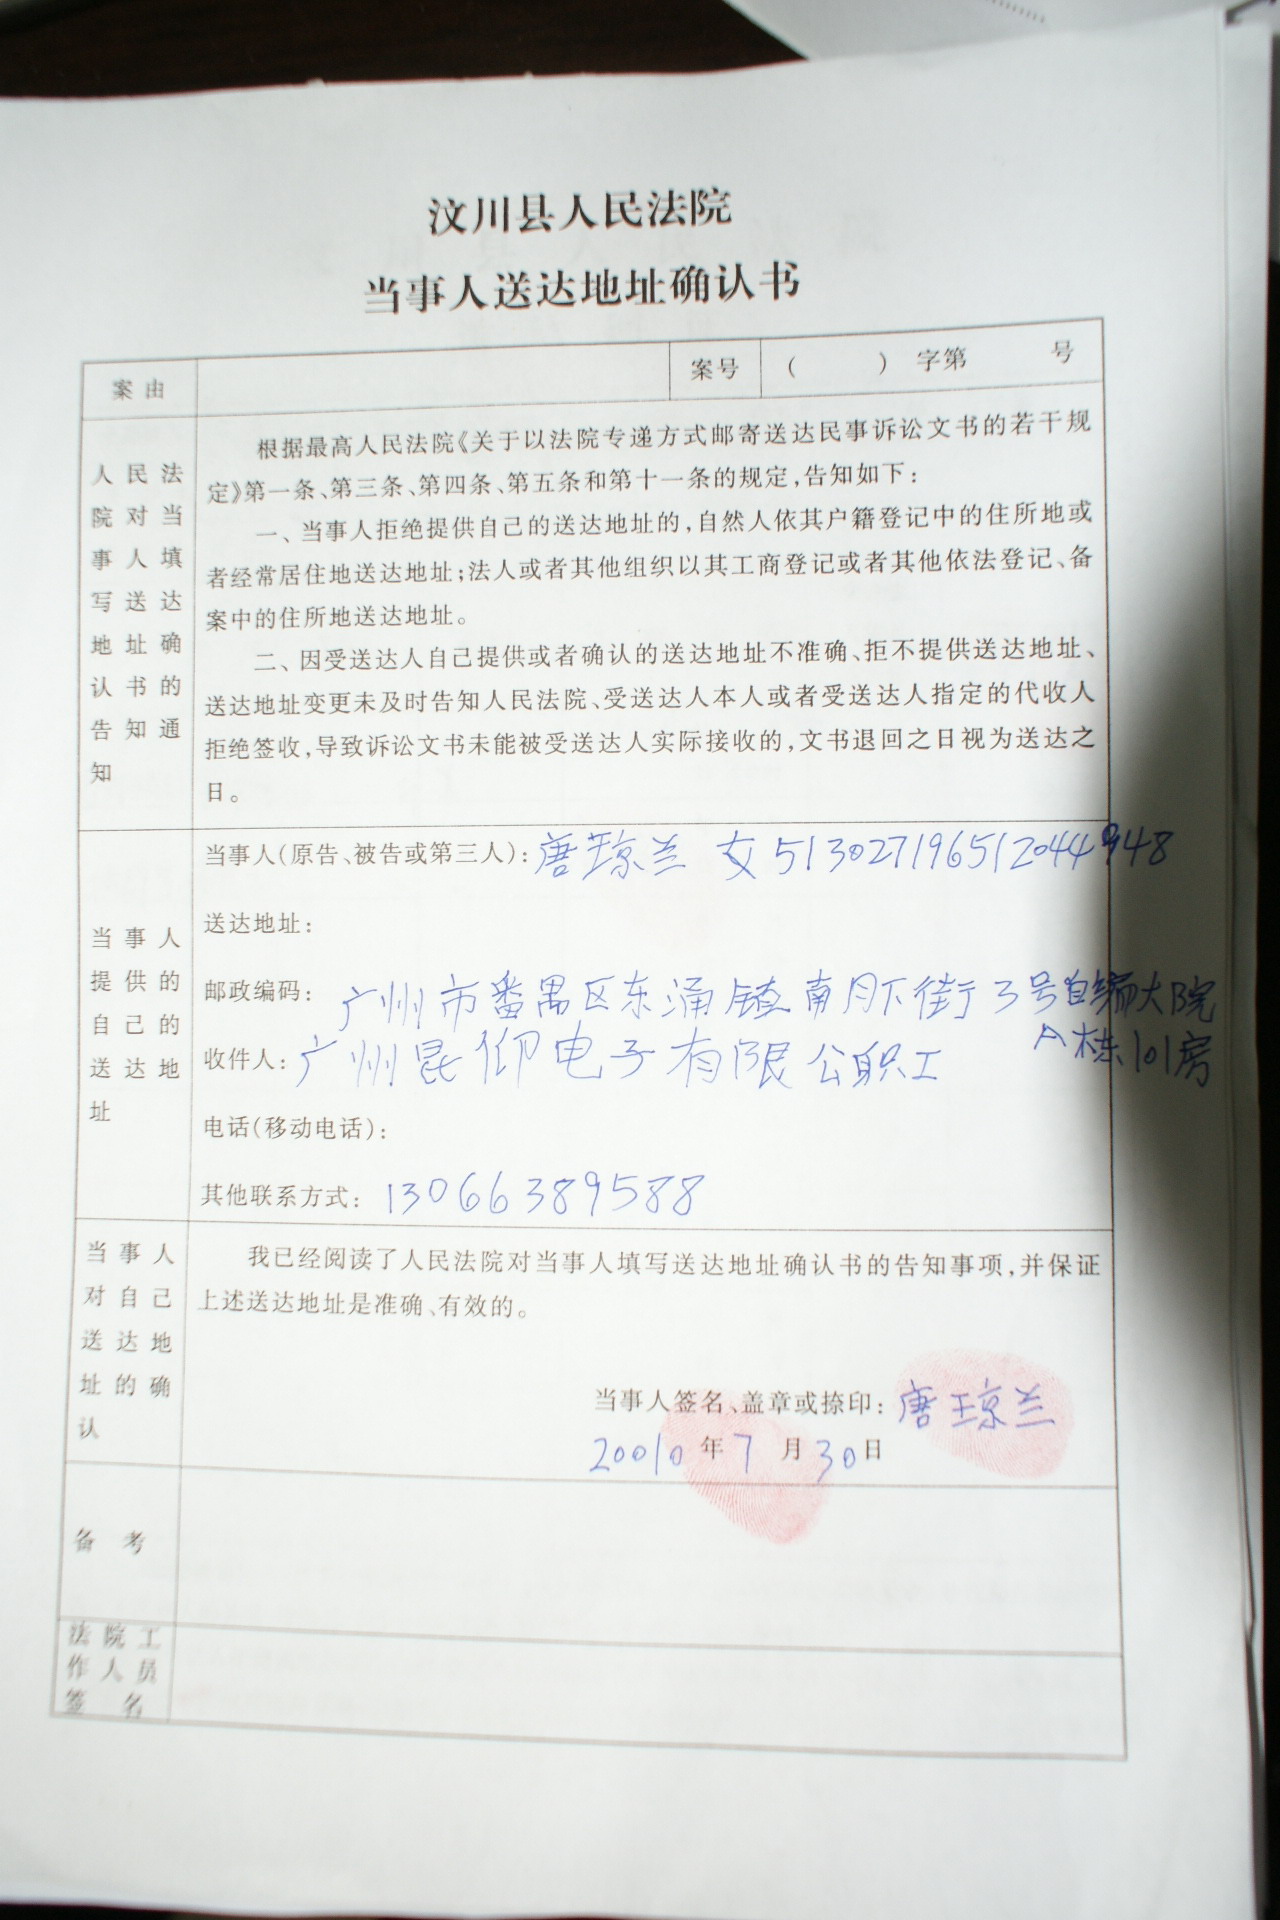 汶川县人民法院
当事人送达地址确认书
案由
案号
( ) 字第 号
人民法
院对当
事人填
写送达
地址确
认书的
告知通
知
根据最高人民法院《关于以法院专递方式邮寄送达民事诉讼文书的若干规
定》第一条、第三条、第四条、第五条和第十一条的规定,告知如下:
一、当事人拒绝提供自己的送达地址的,自然人依其户籍登记中的住所地或
者经常居住地送达地址;法人或者其他组织以其工商登记或者其他依法登记、备
案中的住所地送达地址。
二、因受送达人自己提供或者确认的送达地址不准确、拒不提供送达地址、
送达地址变更未及时告知人民法院、受送达人本人或者受送达人指定的代收人
拒绝签收,导致诉讼文书未能被受送达人实际接收的,文书退回之日视为送达之
日。
当事人
提供的
自己的
送达地
址
当事人(原告、被告或第三人): 唐琼兰 女 513027196512044948
送达地址:
邮政编码: 广州市番禺区东涌镇南月下街3号自编大院
A栋101房
收件人: 广州昆仰电子有限公职工
电话(移动电话):
其他联系方式: 13066389588
当事人
对自己
送达地
址的确
认
我已经阅读了人民法院对当事人填写送达地址确认书的告知事项,并保证
上述送达地址是准确、有效的。
当事人签名、盖章或捺印: 唐琼兰
20010年7月30日
备考
法院工
作人员
签名